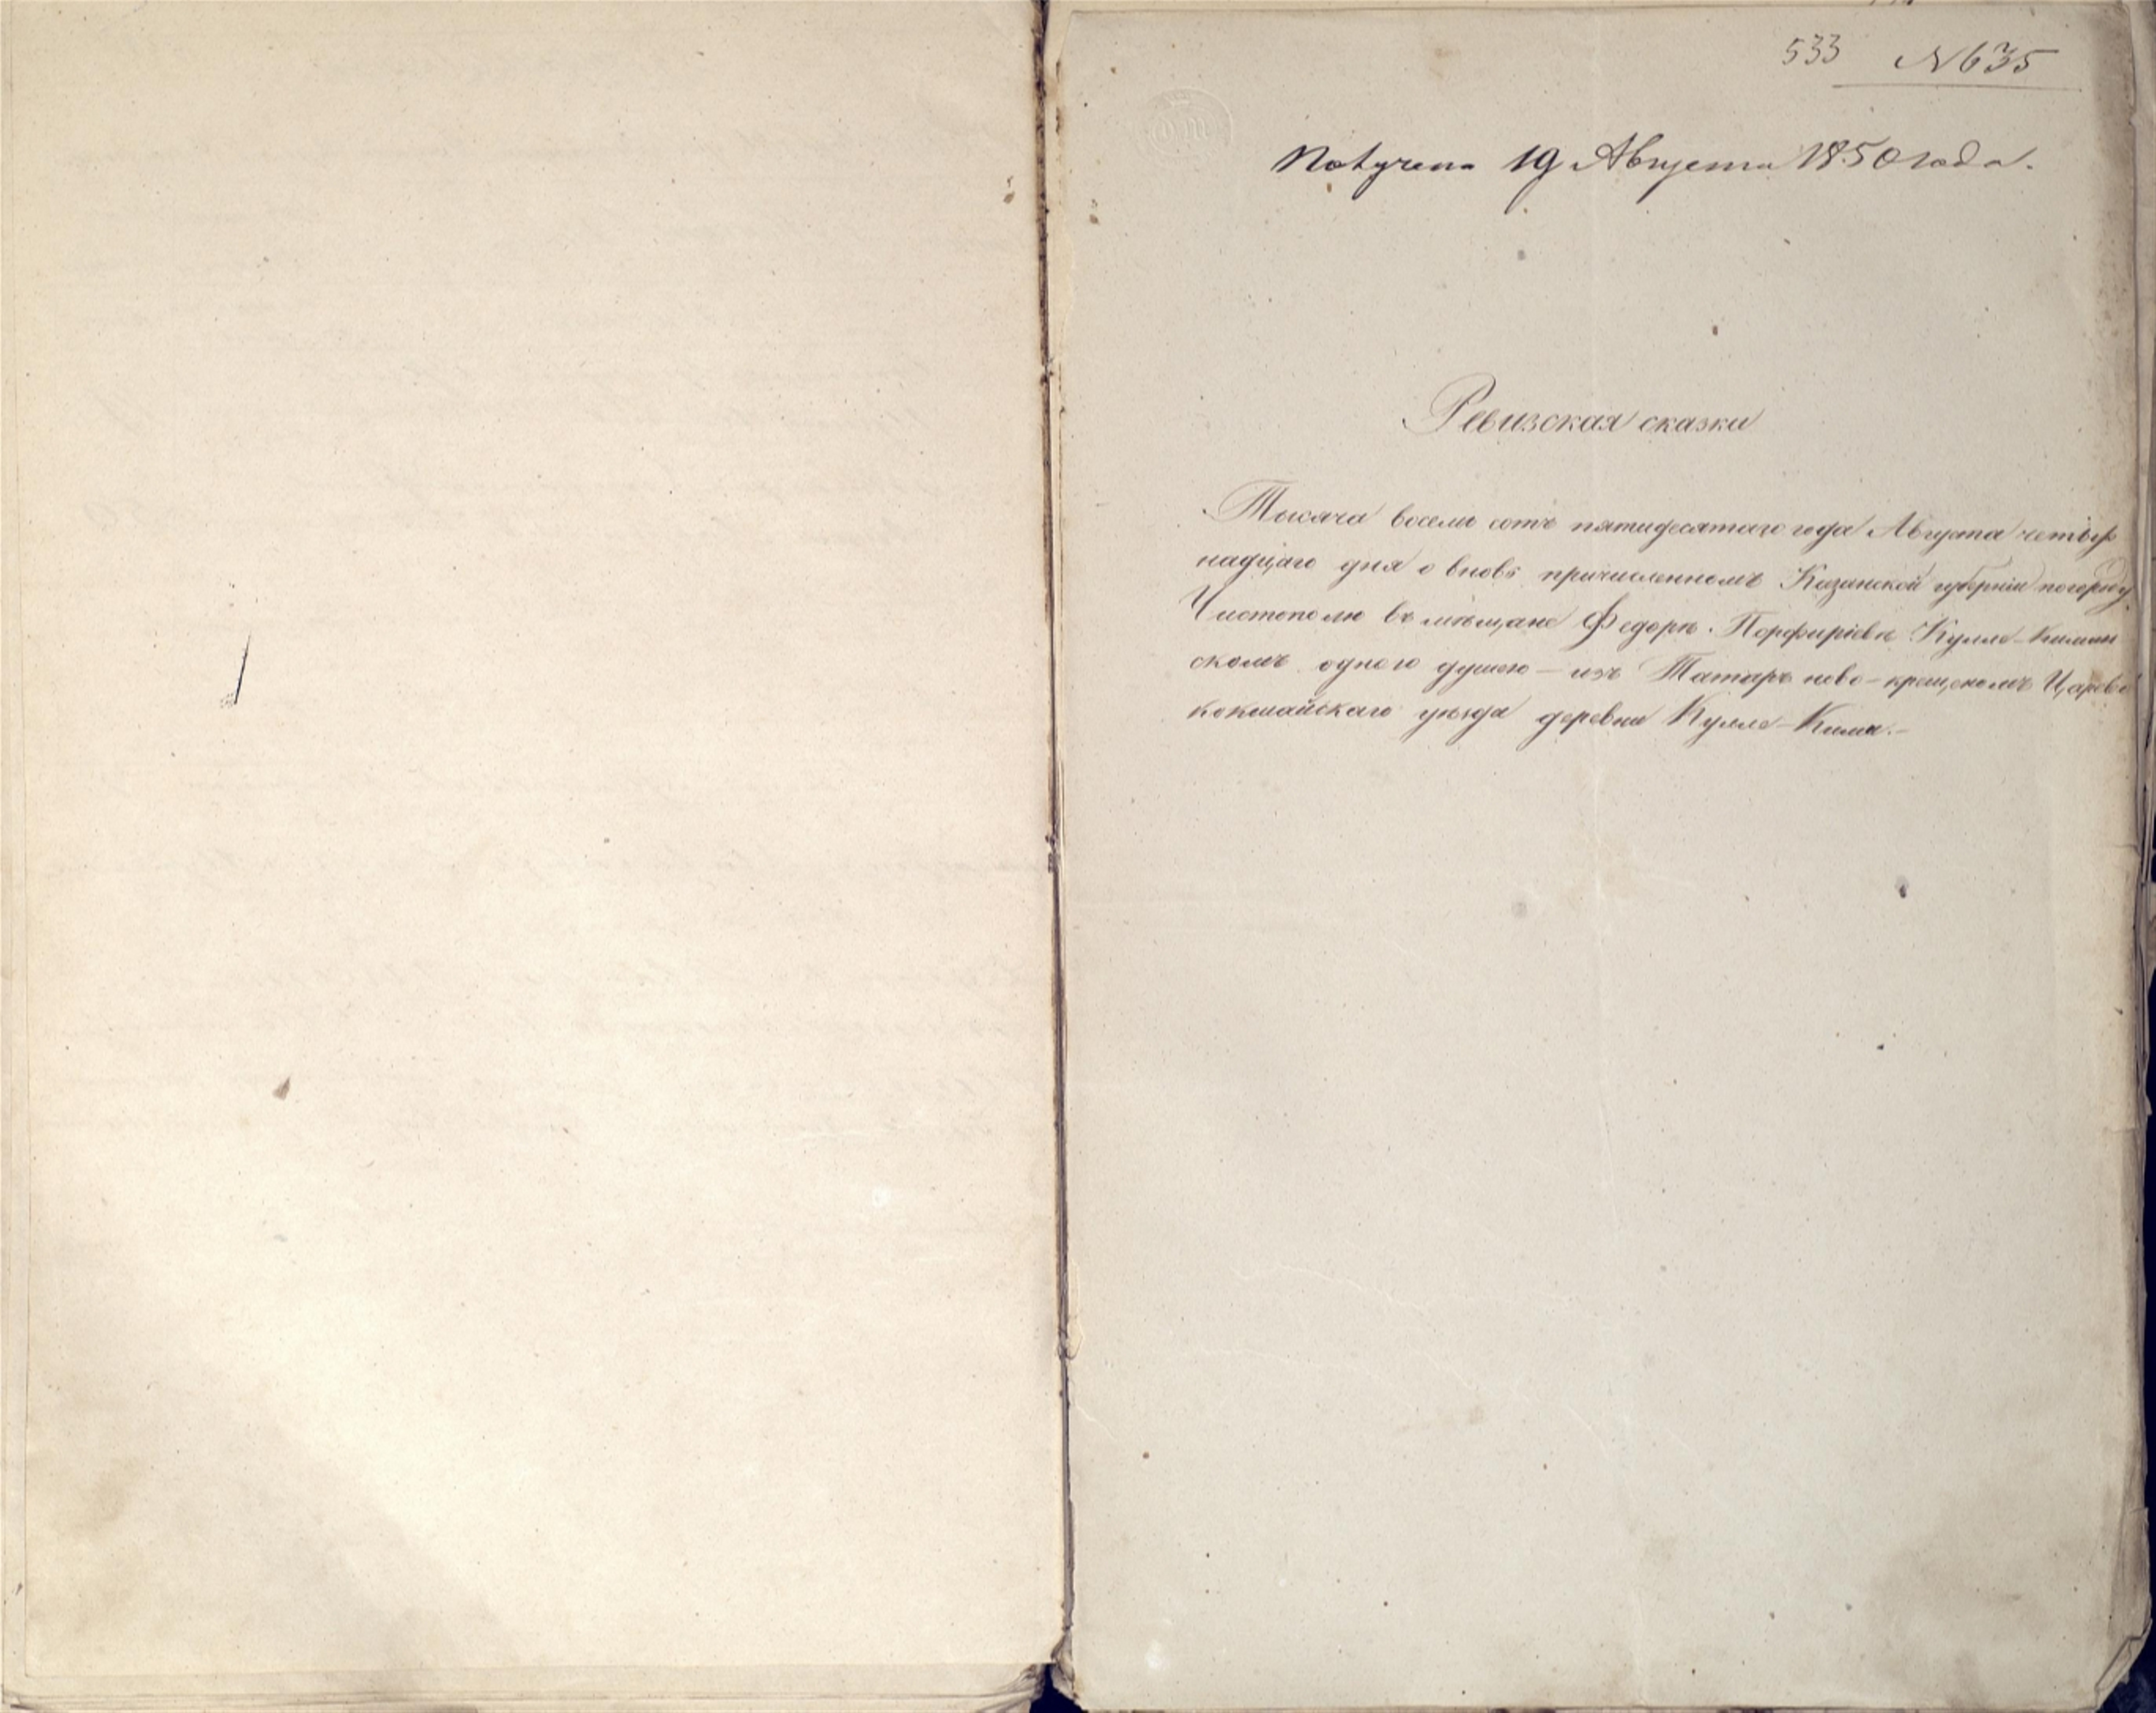 533 №635
Получена 19 Августа 1850 года.
Ревизская сказка
Тысяча восемь сотъ пятидесятаго года Августа четыр
надцаго дня о вновь причисленномъ Казанской губерніи по городу
Чистополю въ мѣщане Федорѣ Порфиріевѣ Кулле-Кимин
скомъ одною душею — изъ Татаръ ново-крещеномъ Царево
кокшайскаго уѣзда деревни Кулле-Кими.—